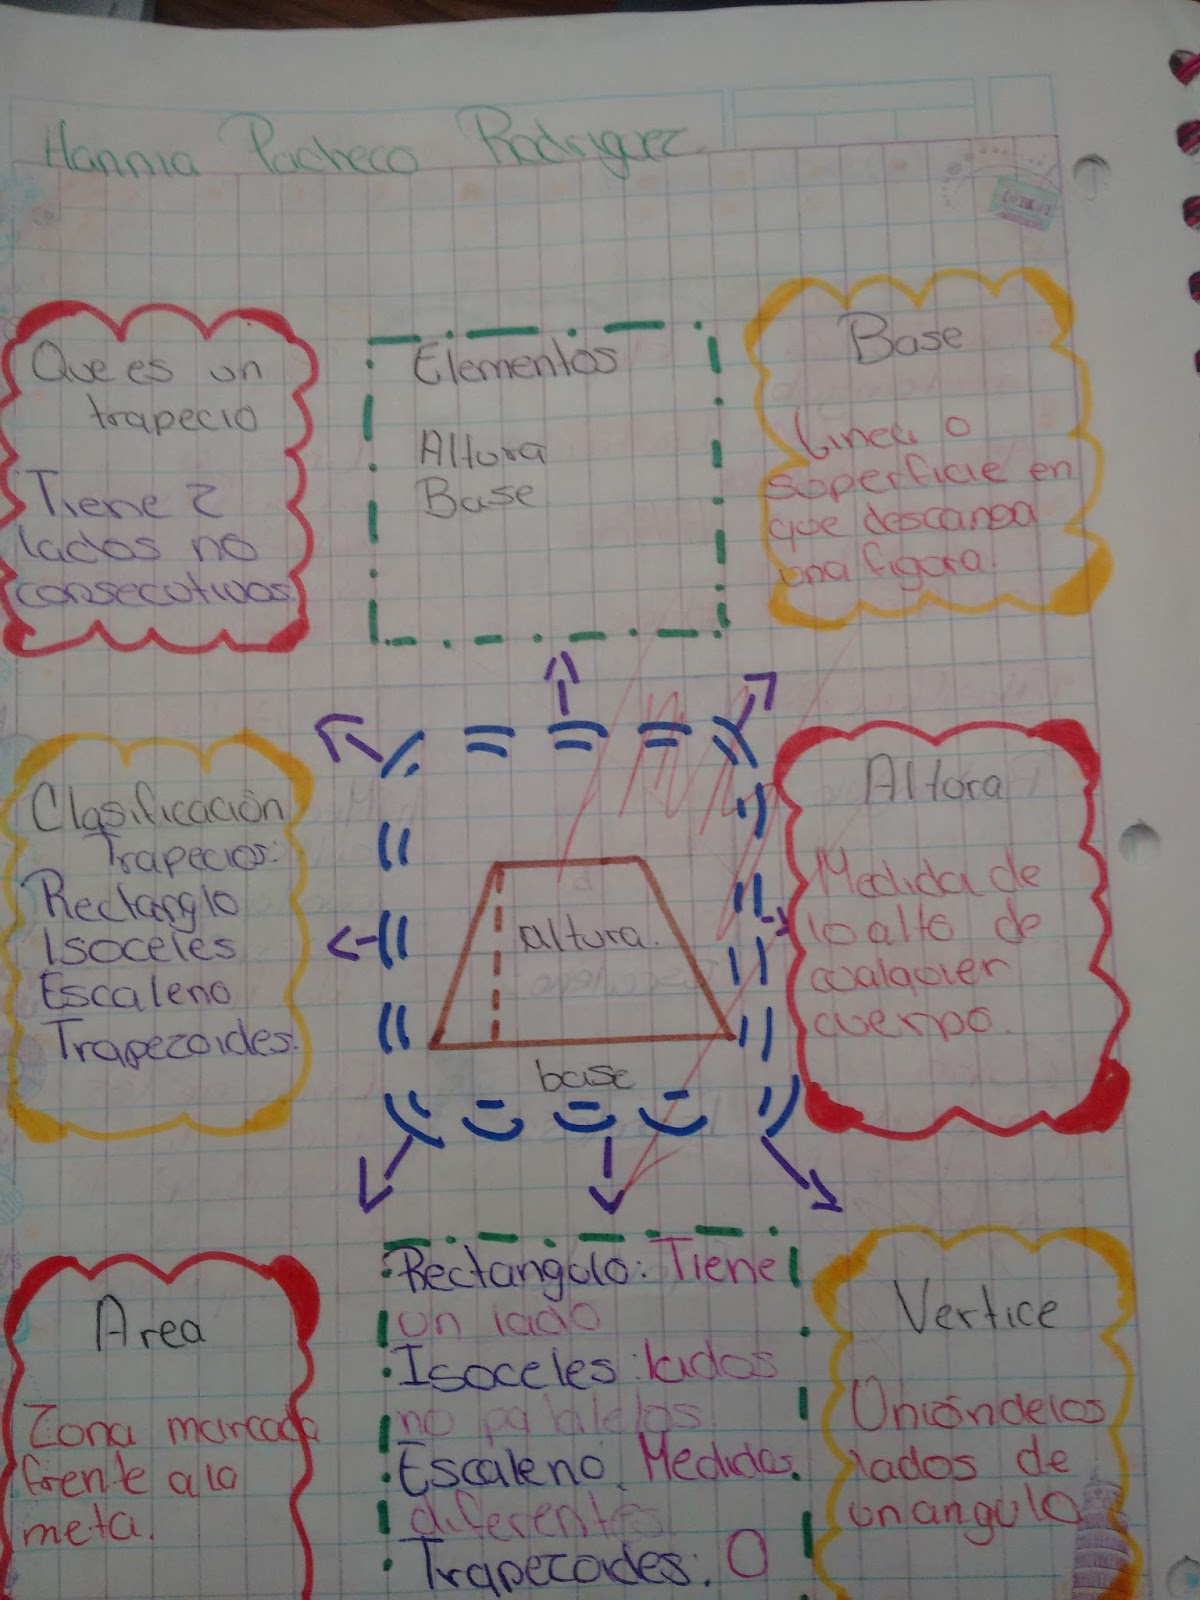 Hannia Pacheco Rodriguez.
Que es un
trapecio
Tiene 2
lados no
consecutivos.
Elementos
Altura
Base
Base
Linea o
superficie en
que descansa
una figura.
Clasificación
Trapecios:
Rectanglo
Isoceles
Escaleno
Trapezoides.
altura.
base
Altura
Medida de
lo alto de
cualquier
cuerpo.
Area
Zona marcada
frente a la
meta.
Rectangulo: Tiene
un lado
Isoceles: lados
no paralelos
Escaleno. Medidas
diferentes
Trapezoides: O
Vertice
Unión de los
lados de
un angulo